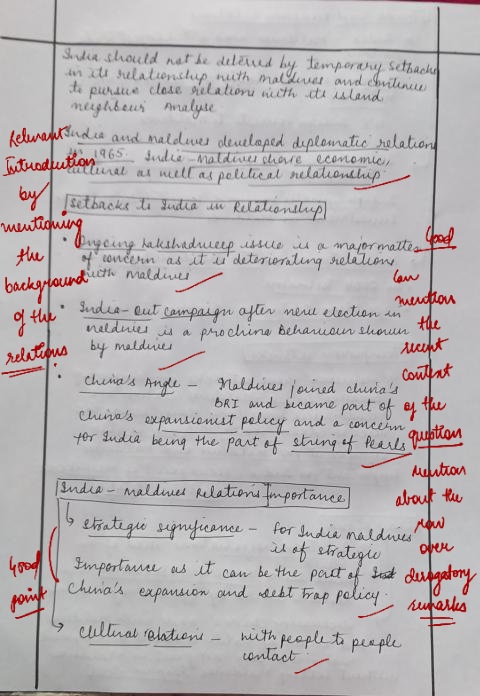 India should not be deterred by temporary setbacks
in its relationship with Maldives and continue
to pursue close relations with its island
neighbour Analyse
India and Maldives developed diplomatic relation
in 1965. India-Maldives share economic,
cultural as well as political relationship.
Relevant
Introduction
by
mentioning
the
background
of the
relations
Setbacks to India in Relationship
• Ongoing Lakshadweep issue is a major matter
of concern as it is deteriorating relations
with Maldives
• India-Out campaign after new election in
Maldives is a prochina Behaviour shown
by Maldives
• China's Angle - Maldives joined China's
BRI and became part of
China's expansionist policy and a concern
for India being the part of string of Pearls
Good
Can
mention
the
recent
context
of the
question
mention
about the
row
over
derogatory
remarks
India-Maldives Relations Importance
Strategic significance - for India Maldives
is of strategic
Importance as it can be the part of
China's expansion and debt trap policy.
Good
point
Cultural relations - with people to people
contact